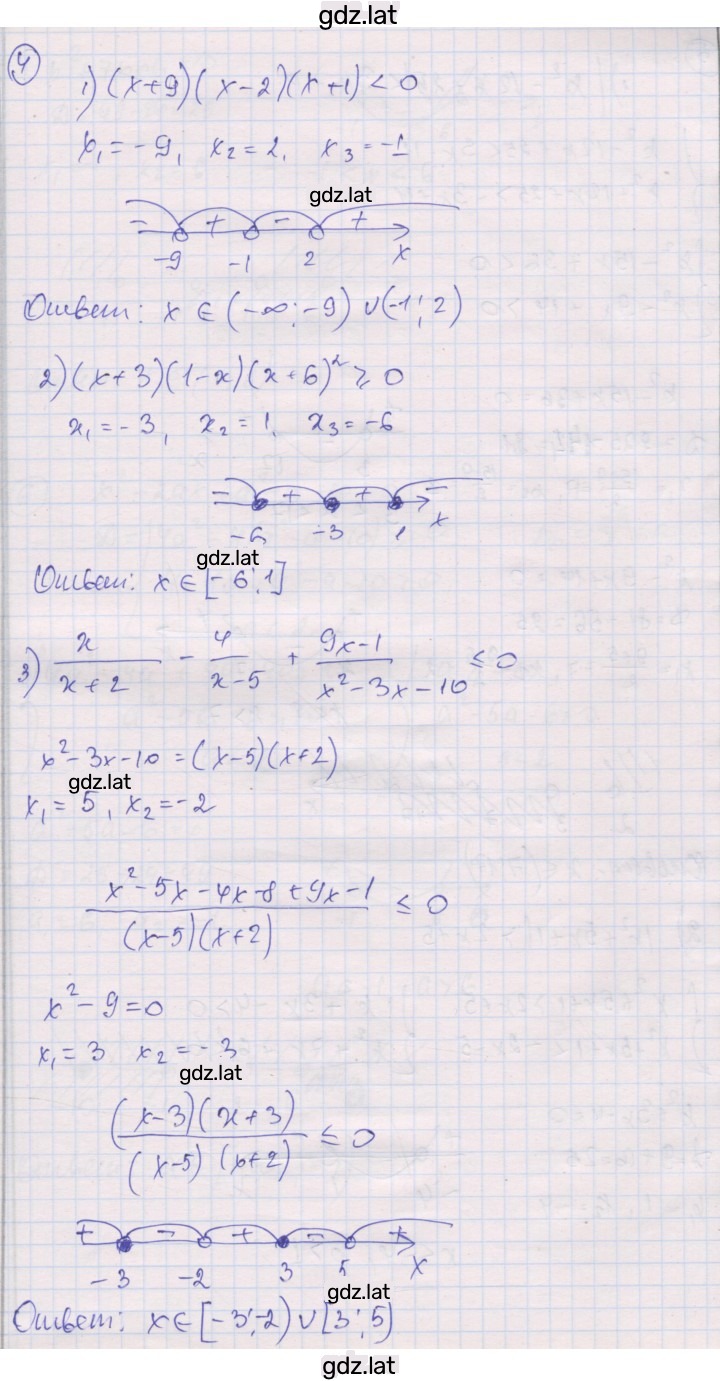 gdz.lat
4
1) (x+9)(x-2)(x+1) < 0
x₁ = -9, x₂ = 2, x₃ = -1
gdz.lat
- + - +
-9 -1 2 x
Ответ: x ∈ (-∞; -9) ∪ (-1; 2)
2) (x+3)(1-x)(x+6)² ≥ 0
x₁ = -3, x₂ = 1, x₃ = -6
- + + -
-6 -3 1 x
gdz.lat
Ответ: x ∈ [-6; 1]
3) x/(x+2) - 4/(x-5) + (9x-1)/(x²-3x-10) ≤ 0
x²-3x-10 = (x-5)(x+2)
gdz.lat
x₁ = 5, x₂ = -2
(x²-5x-4x-8+9x-1)/((x-5)(x+2)) ≤ 0
x²-9=0
x₁ = 3 x₂ = -3
gdz.lat
((x-3)(x+3))/((x-5)(x+2)) ≤ 0
+ - + - +
-3 -2 3 5 x
gdz.lat
Ответ: x ∈ [-3; -2) ∪ [3; 5)
gdz.lat